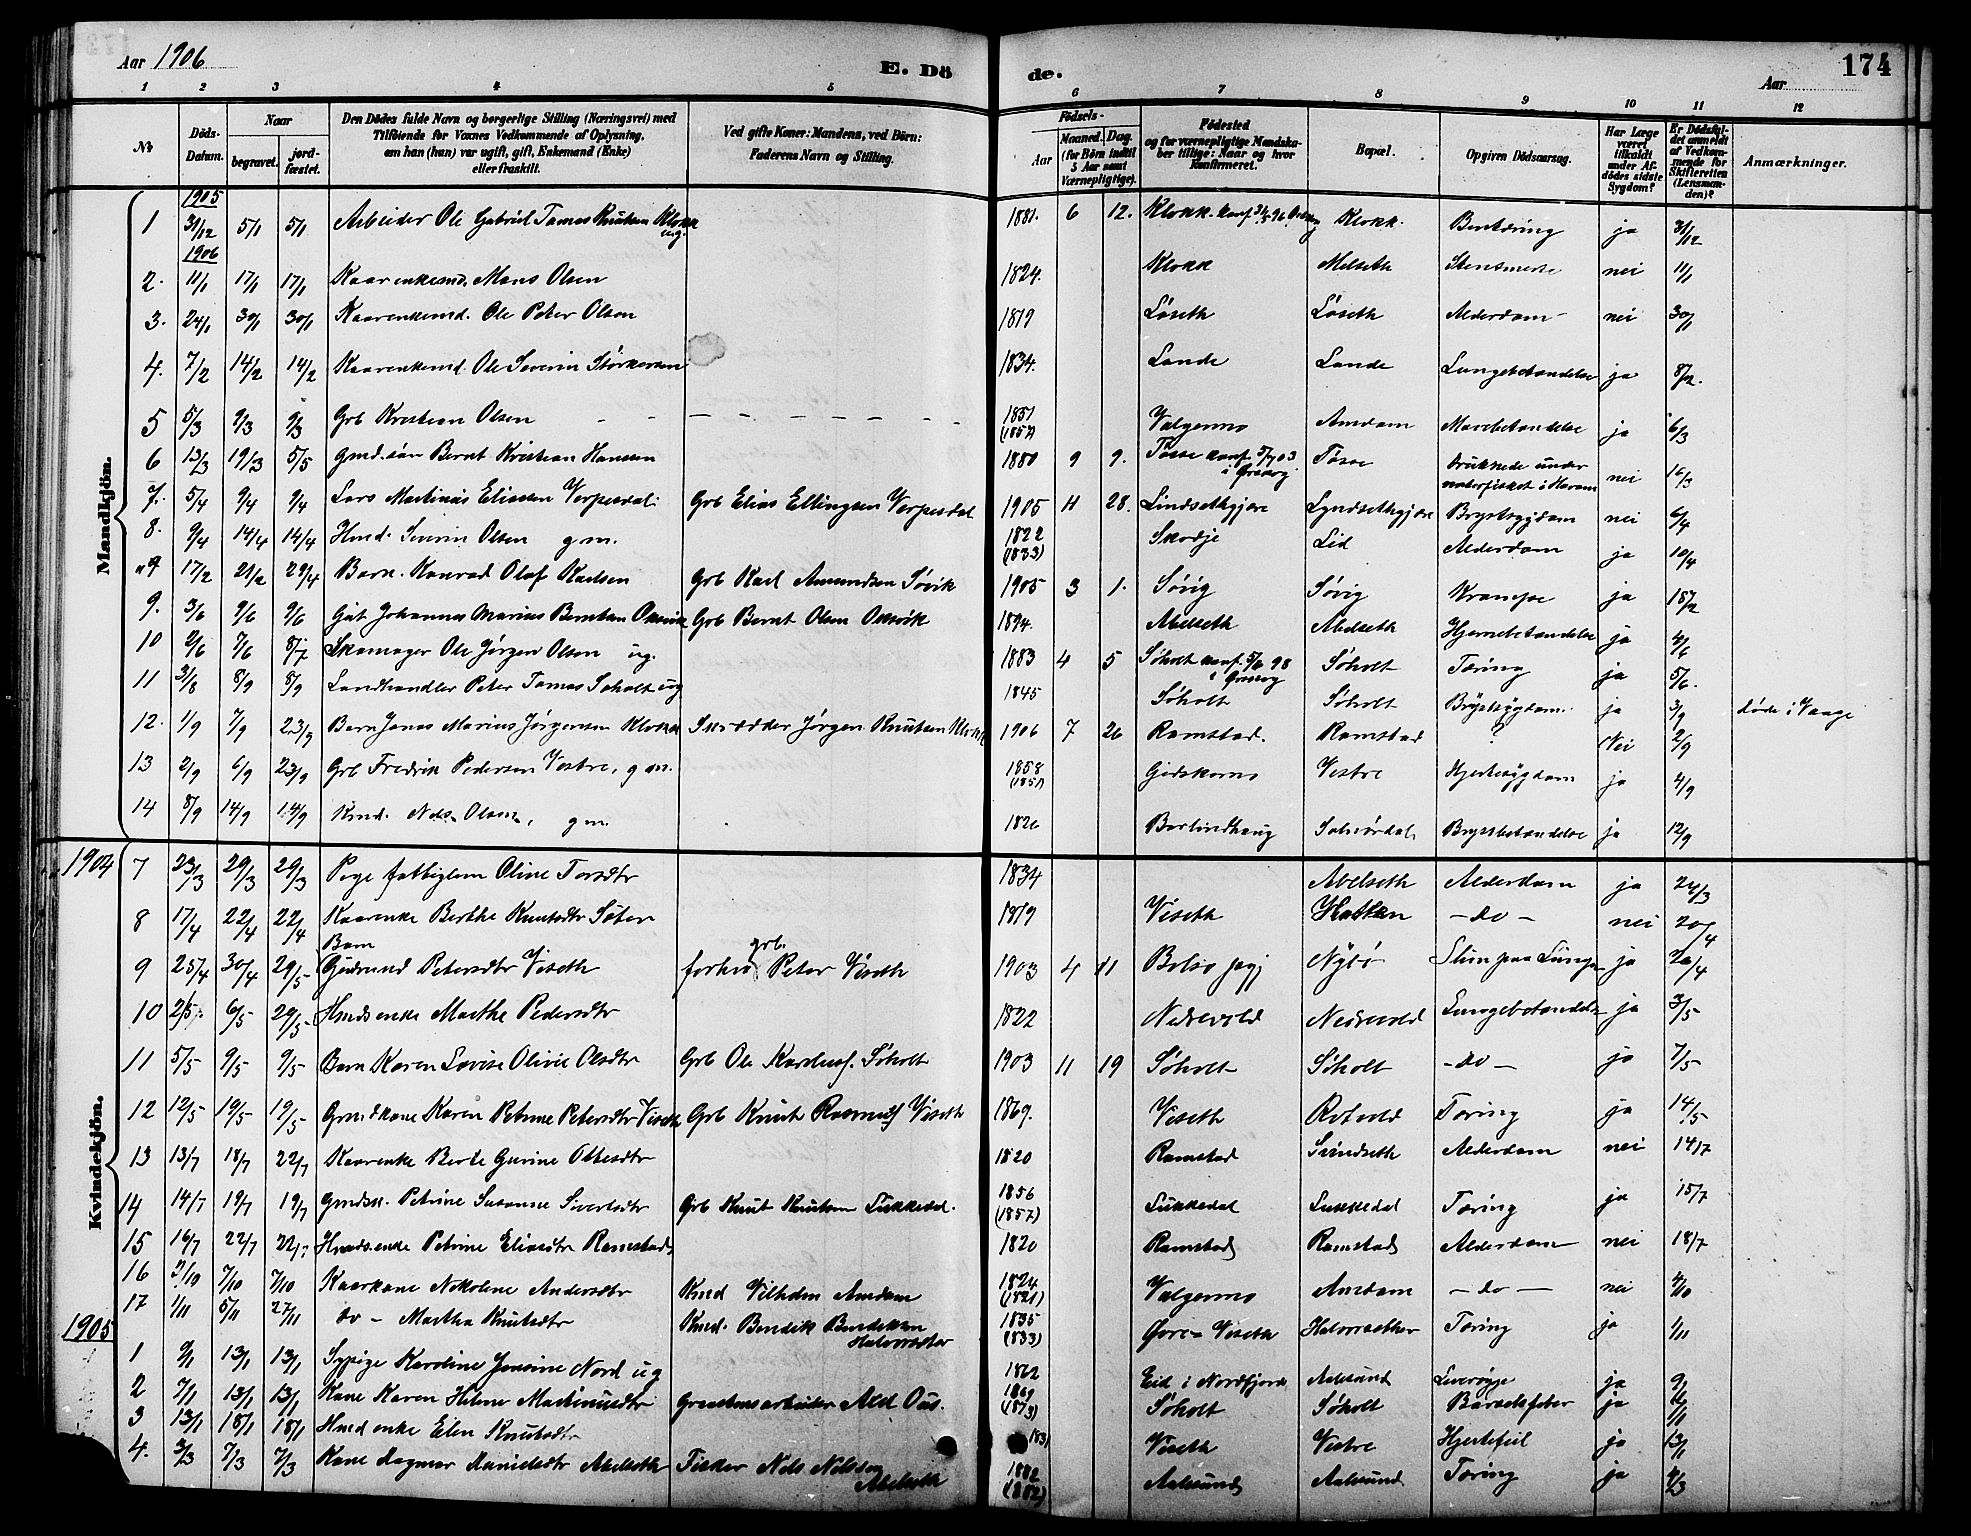 Aar 1906
E. Dö
de.
Aar
174
1 2 3 4 5 6 7 8 9 10 11 12
No
Döds-Datum.
Naar begravet. jordfæstet.
Den Dödes fulde Navn og borgerlige Stilling (Næringsvei) med Tilföiende for Voxnes Vedkommende af Oplysning, om han (hun) var ugift, gift, Enkemand (Enke) eller fraskilt.
Ved gifte Koner: Mandens, ved Börn: Faderens Navn og Stilling.
Födsels-
Aar Maaned. Dag. (for Börn indtil 5 Aar samt Værnepligtige).
Födested og for værnepligtige Mandskaber tillige: Naar og hvor Konfirmeret.
Bopæl.
Opgiven Dödsaarsag.
Har Læge været tilkaldt under Afdödes sidste Sygdom?
Er Dödsfaldet anmeldt af Vedkommende for Skifteretten (Lensmanden)?
Anmærkninger.
Mandkjön.
1905
1 31/12 5/1 5/1 Arbeider Ole Gabriel Tomas Knutsen Klokk ug. 1881. 6 12. Klokk. Klokk. Bentæring ja 31/12
1906
2. 11/1 17/1 17/1 Kaarenkemd. Mons Olsen 1824. Klokk Melseth nei 11/1
3. 24/1 30/1 30/1 Kaarenkemd. Ole Peter Olsen 1819 Løseth Løseth Alderdom nei 30/1
4. 7/2 14/2 14/2 Kaarenkemd. Ole Severin Størkersen 1834. Lande Lande Lungebetændelse ja 8/2.
5 5/3 9/3 9/3 Grb Kristian Olsen 1851 (1857) Valgermo Amdam Mavebetændelse ja 6/3
6 13/3 19/3 5/5 Gmd.søn Bernt Kristian Hansen 1880 9 9. Tøsse Tøsse druknede under vinterfisket i Haram nei 16/3
7. 5/4 9/4 9/4 Lars Martinus Eliassen Verpesdal Grb Elias Ellingsen Verpesdal 1905 11 28. Lindsethgjære Lyndsethgjære Brystsygdom nei 6/4
8. 9/4 14/4 14/4 Kmd. Severin Olsen gm. 1822 (1833) Skodje Lid Alderdom ja 10/4
"9 17/2 21/2 29/4 Barn. Konrad Olaf Karlsen Grb Karl Amundsen Søvik 1905 3 1. Søvig Søvig Krampe ja 18/2
9. 3/6 9/6 9/6 Gut Johannes Marius Berntsen Grb Bernt Olsen 1894. Abelseth Abelseth Hjernebetændelse ja 4/6
10 2/6 7/6 8/7 Skomager Ole Jørgen Olsen ug. 1883 4 5 Søholt konf. 5/6 98 Søholt Tæring ja 5/6.
11 31/8 8/9 8/9 Landhandler Peter Tomas Søholt ug 1845 Søholt Søholt Brystsygdom ja 3/9 døde i Vaage
12. 1/9 7/9 23/9 Barn Jonas Marius Jørgensen Klokk Skrædder Jørgen Knutsen Klokk 1906 7 26 Ramstad. Ramstad ? Nei 2/9
13 2/9 6/9 23/9 Grb Fredrik Pedersen Vestre, gm. 1858 (1851) Gjedskemo Vestre Hjertesygdom ja 4/9
14 8/9 14/9 14/9 Kmd. Nels Olsen, gm. 1826 Barlindhaug Solnørdal Brystbetændelse ja 12/9
Kvindekjön.
1904 7 23/3 29/3 29/3 Pige fattiglem Oline Torsdtr 1834 Abelseth Alderdom ja 24/3
8 17/4 22/4 22/4 Kaarenke Berthe Knutsdtr 1819 Viseth Hatlen - do - nei 20/4
9 25/4 30/4 29/5 Barn Gudrund Petersdtr Viseth forhv. grb. Peter Viseth 1903 4 11 Bolsø pgj Nybø Slim paa Lunge ja 26/4
10 2/5 6/5 29/5 Kmdsenke Marthe Pedersdtr 1822 Nedrevold Nedrevold Lungebetændelse ja 3/5
11 5/5 9/5 9/5 Barn Karen Lovise Olivie Olsdtr Grb Ole Søholt 1903 11 19 Søholt Søholt - do - ja 7/5
12 12/5 19/5 19/5 Grmdkone Karen Petrine Petersdtr Viseth Grb Knut Rasmus Viseth 1869. Viseth Tæring ja 14/5
13 13/7 18/7 22/7 Kaarenke Berte Gurine Ottesdtr 1820 Ramstad Svindseth Alderdom nei 14/7
14 14/7 19/7 19/7 Gmdsk. Petrine Susanne Sivertsdtr Grb Knut Knutsen Lukkedal. 1856 (1857) Lukkedal Lukkedal Tæring ja 15/7
15 16/7 22/7 22/7 Kmdsenke Petrine Eliasdtr Ramstad 1820 Ramstad Ramstad Alderdom nei 18/7
16 2/10 7/10 7/10 Kaarkone Nikoline Andersdtr Kmd Vilhelm Amdam 1824 (1821) Valgermo Amdam - do - nei 4/10
17 1/11 5/11 27/11 do - Martha Knutsdtr Kmd. Bendik Bendiksen 1835 (1833) Øvre Viseth Tæring ja 1/11
1905
1 9/1 13/1 13/1 Sypige Karoline Jensine Nord ug 1862 Eid i Nordfjord Aalesund ja 9/1
2 7/1 13/1 13/1 Kone Karen Helene Martinusdtr 1869 (1873) Søholt Søholt Barselfeber ja
3 13/1 18/1 18/1 Kmd enke Elen Knutsdtr 1831 Viseth Vestre Hjertefeil ja 13/1
4. 3/3 7/3 7/3 Kone Dagmar Danielsdtr Abelseth Fisker Nels Nilssen Abelseth 1882 (1882) Aalesund Aalesund Tæring ja 4/3